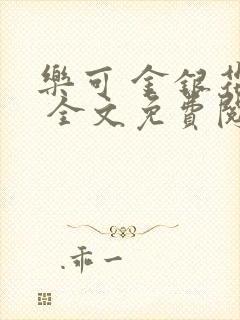 樂可 金銀花
全文免費閱
.乖一